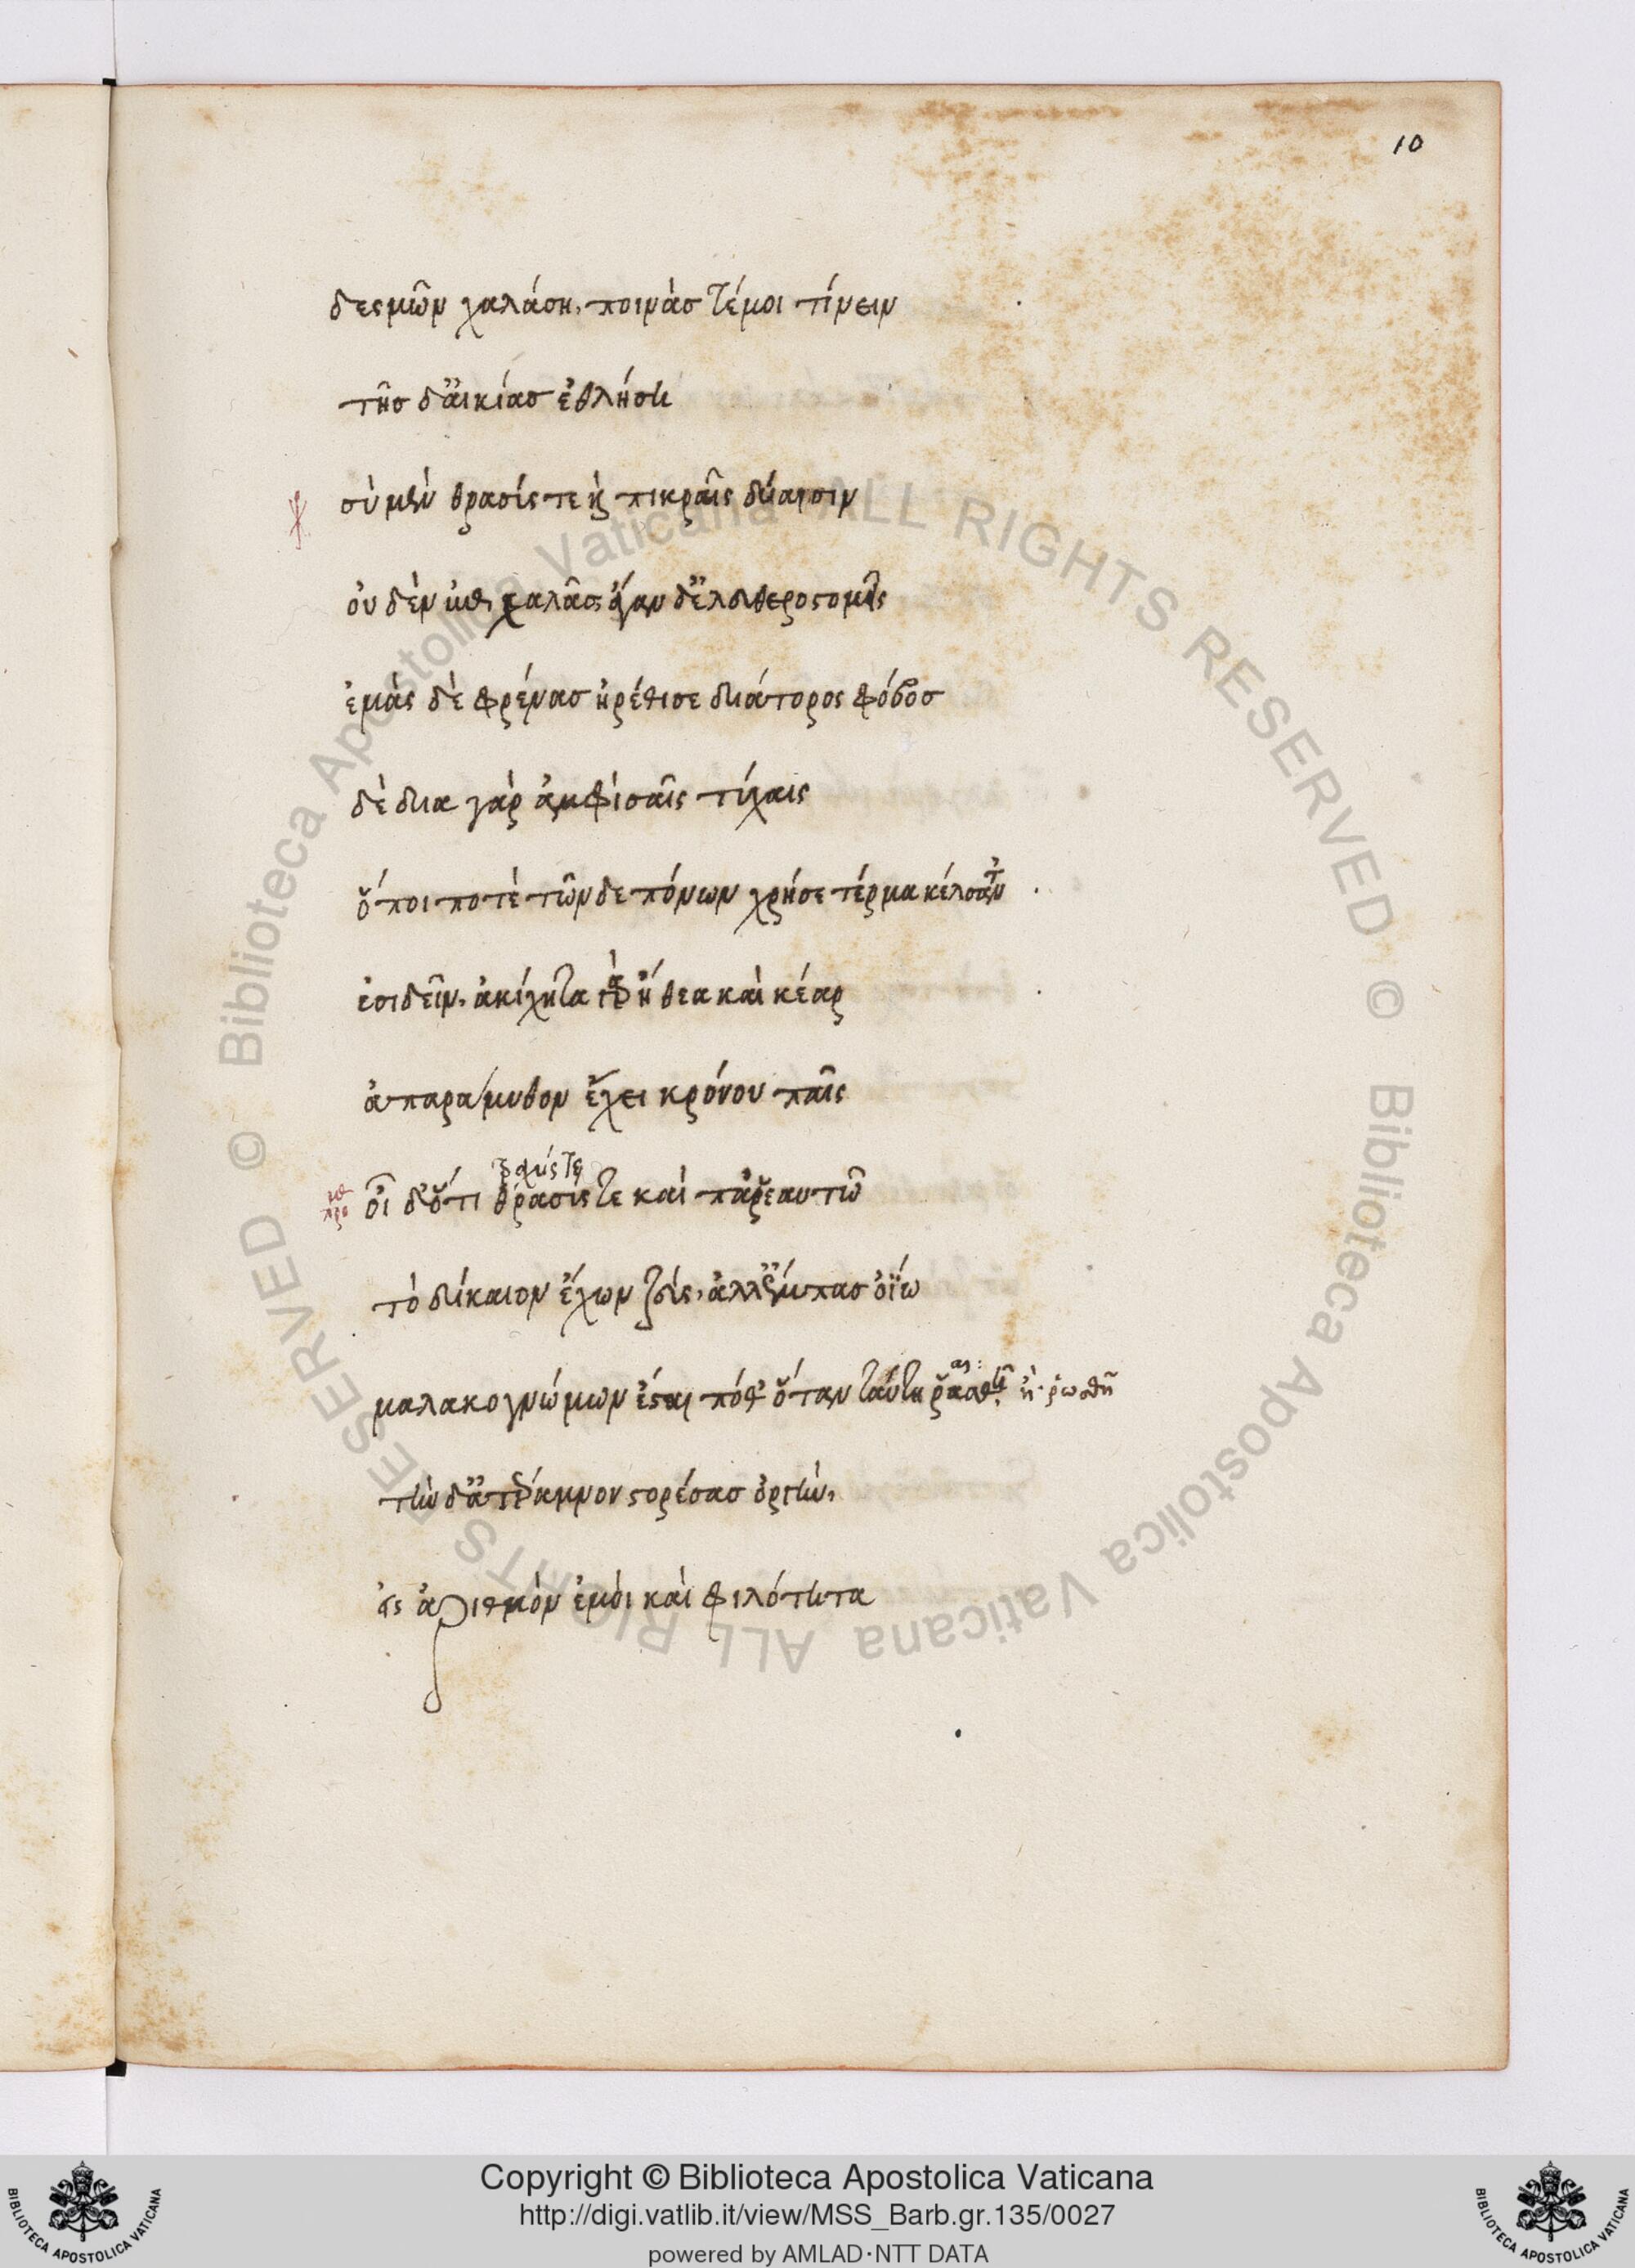 10
δεσμῶν χαλάση, ποινὰσ τἐμοι τίνειν
τῆσ δ' ἀικίασ ἐθλήση
σὺ μὲν θρασύς τε κ πικραῖς δύαισιν
ὀυδὲν ἐπιχαλᾶς ἄγαν δ' ἐλευθεροστομεῖς
ἐμὰς δὲ φρένασ ἠρέθισε διάτοροσ φόβοσ
δέδια γὰρ ἀμφὶ σαῖς τύχαις
ὅποι ποτὲ τῶνδε πόνων χρή σε τέρμα κέλσαντ
ἐσιδεῖν, ἀκίχητα γὰρ ἤθεα καὶ κέαρ
ἀπαράμυθον ἔχει κρόνου παῖς
τραχύς τε
προ
ὀῖδ' ὅτι θρασύς τε καὶ παρ' ἑαυτῶ
τὸ δίκαιον ἔχων ζεύς, ἀλλ' ἔμπασ ὀΐω
μαλακογνώμων ἔσται πόθ' ὅταν ταύτη ῥαισθῆ ἢ ῥωσθῆ
τὴν δ' ἀτέραμνον στορέσασ ὀργὴν,
ἐις ἀριθμὸν ἐμὸι καὶ φιλότητα
Copyright © Biblioteca Apostolica Vaticana
http://digi.vatlib.it/view/MSS_Barb.gr.135/0027
powered by AMLAD·NTT DATA
BIBLIOTECA APOSTOLICA VATICANA
BIBLIOTECA APOSTOLICA VATICANA
© Biblioteca Apostolica Vaticana ALL RIGHTS RESERVED © Biblioteca Apostolica Vaticana ALL RIGHTS RESERVED